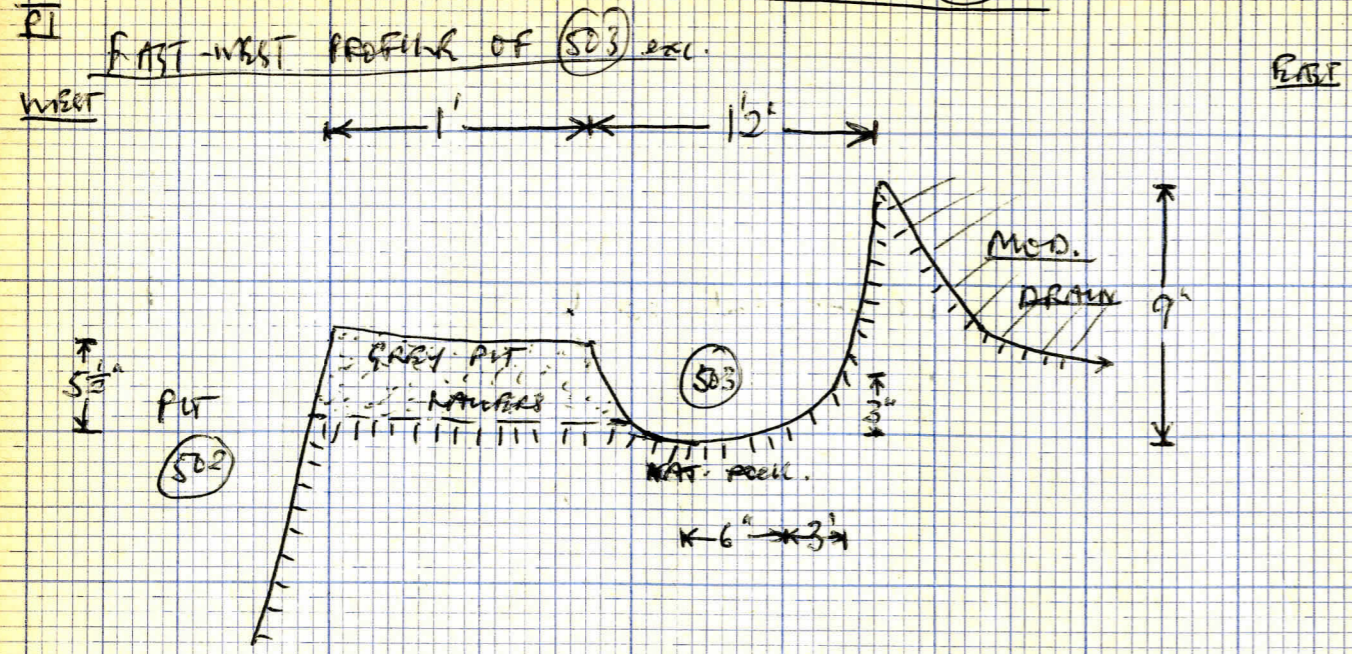 P1
EAST-WEST PROFILE OF 503 exc.
WEST
EAST
1'
1'2"
MOD.
DRAIN
9"
5½"
GREY PIT
LAYERS
503
3"
PIT
502
NAT. ROCK.
6"
3"